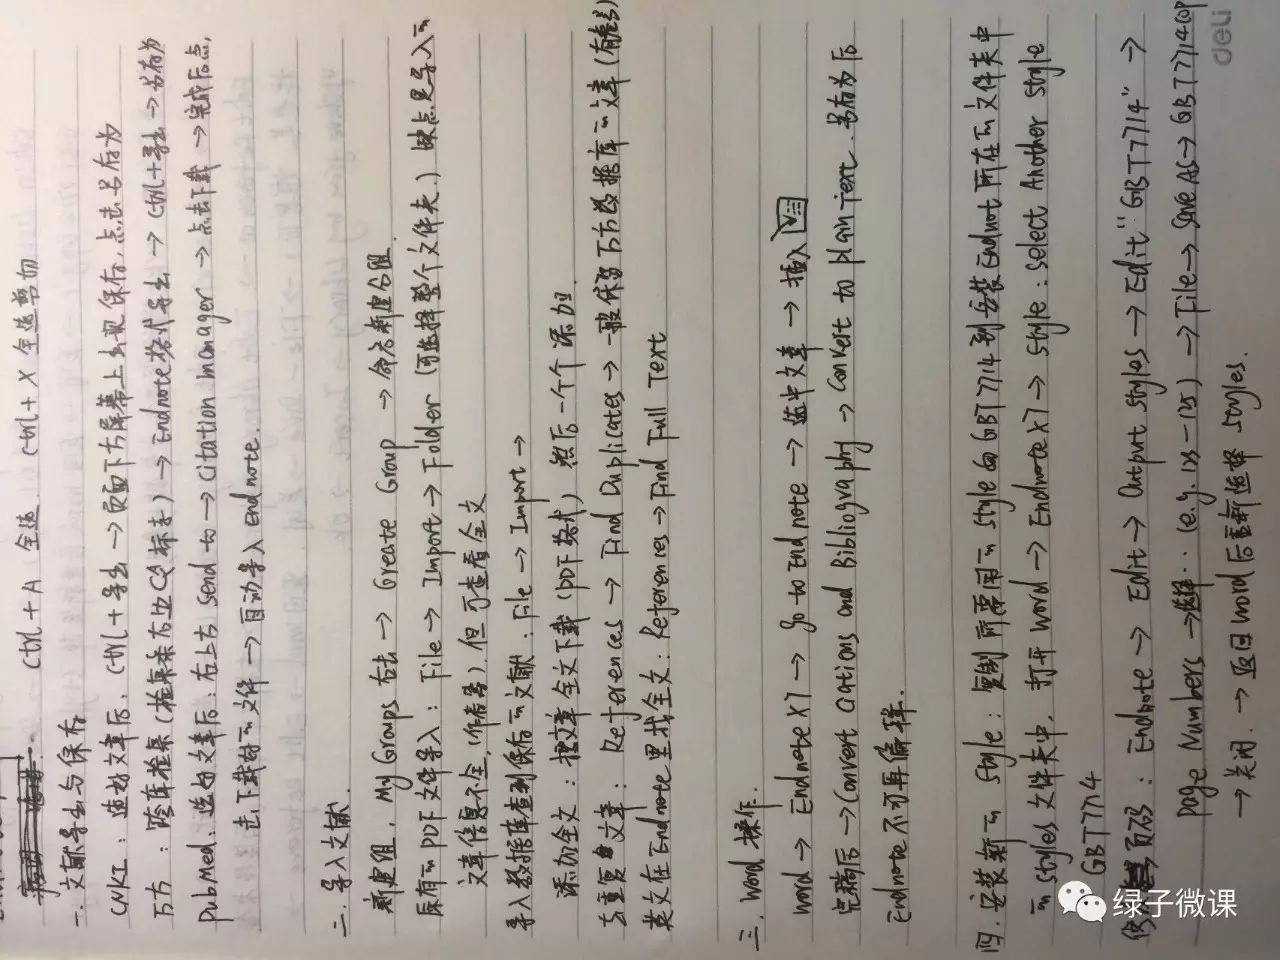 Ctrl + A 全选 Ctrl + X 全选剪切
一. 文献导出与保存
CNKI : 选好文章后, Ctrl + 导出 → 页面下方屏幕上出现保存, 点击另存为
万方 : 跨库检索 (检索条右边CQ标志) → Endnote格式导出 → Ctrl+导出 → 另存为
PubMed: 选好文章后: 右上方 Send to → Citation manager → 点击下载 → 完成后点
击下载的文件 → 自动导入Endnote.
二. 导入文献.
新建组. My Groups 右击 → Greate Group → 命名新建分组.
原有的PDF文件导入: File → Import → Folder (可选择整个文件夹.) 缺点是导入的
文章信息不全, (作者等), 但可查看全文
导入数据库查到保存的文献: File → Import →
添加全文: 把文章全文下载 (PDF格式) 然后一个个添加.
去重复文章: References → Find Duplicates → 一般保留下方数据库的文章
英文在Endnote里找全文: References → Find Full Text
三. Word 操作.
Word → Endnote X7 → go to Endnote → 选中文章 → 插入
完稿后 → Convert Citations and Bibliography → Convert to plain text. 另存为后
Endnote不可再编辑.
四. 安装新的 Style: 复制所要用的 Style 如 GBT7714 到安装Endnot所在的文件夹中
的 Styles 文件夹中, 打开 Word → Endnote X7 → Style: Select Another Style
GBT7714
页码 : Endnote → Edit → Output Styles → Edit "GBT7714" →
Page Numbers → 选择.. (e.g. 123-125) → File → Save AS → GBT7714 COP
→ 关闭. → 返回 Word 后重新选择 Styles.
deli
绿子微课